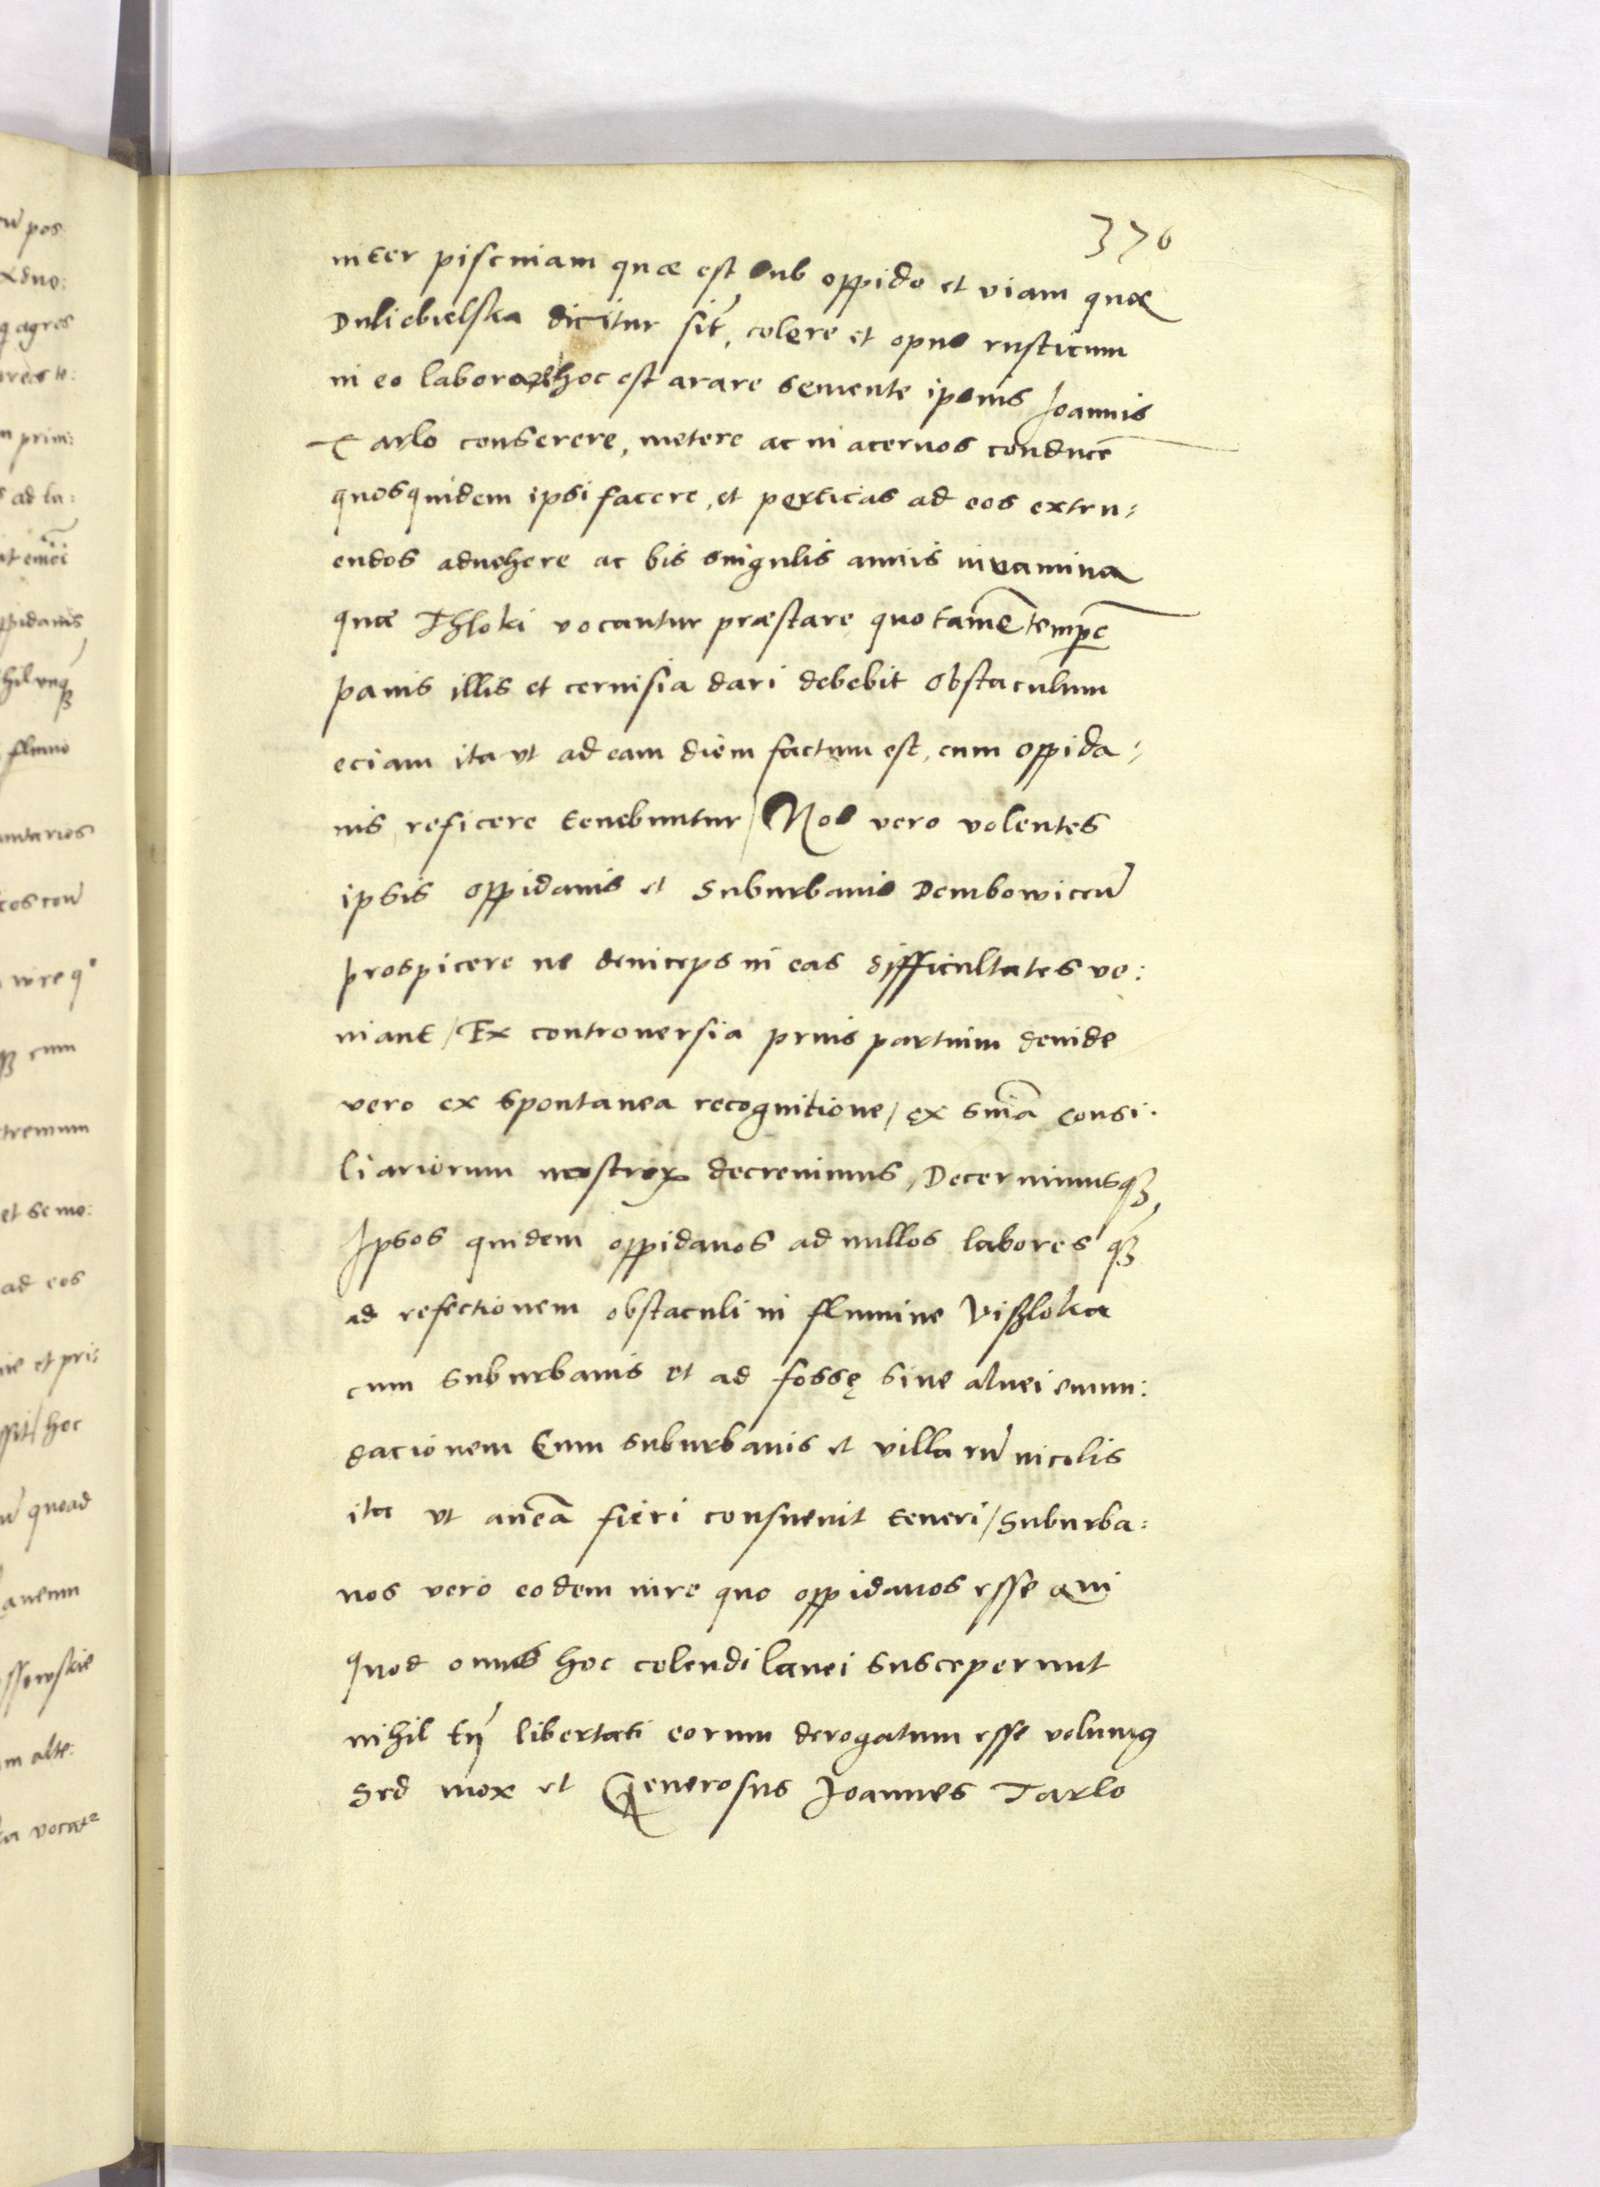 376
inter piscinam quæ est sub oppido et viam quæ
Duliebielska dicitur sit̃, colere et opus rusticum
in eo laborare hoc est arare semente ipsius Joannis
Tarlo conserere, metere ac in acervos conducẽ
quosquidem ipsi facere, et perticas ad eos extru:
endos advehere ac bis singulis annis iuvamina
quæ Thloki vocantur præstare quo tamẽ tempẽ
panis illis et cervisia dari debebit obstaculum
eciam ita vt ad eam diem factum est, cum oppida:
nis reficere tenebuntur / Nos vero volentes
ipsis oppidanis et suburbanis Dembowiceñ
prospicere ne deinceps in eas difficultates ve:
niant / Ex controversia prius partium deinde
vero ex spontanea recognitione / ex sniã consi:
liariorum nostroꝝ decrevimus, Decernimusqꝫ,
Ipsos quidem oppidanos ad nullos labores qꝫ̃
ad refectionem obstaculi in flumine Vißloka
cum suburbanis et ad fossę sive alvei emun:
dacionem Cum suburbanis et villarũ incolis
ita vt anteã fieri consuevit teneri / Suburba:
nos vero eodem iure quo oppidanos esse qui
quod onus hoc colendi lanei susceperunt
nihil tñ libertati eorum derogatum esse volumꝰ
Sed mox et Generosus Joannes Tarlo